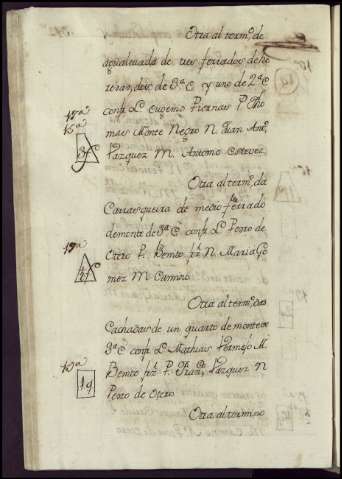 Otra al termº de
de tres ferrados de
dos de 3ª C y uno de 2ª C
confª L Eugenio Piernas P. Tho
mas Monte Negro N. Juan Antº
Vazquez M. Antonio Estevez
17ª
15ª
Otra al termº da
Carrasqueira de medio ferrado
de monte de 3ª C confª L. Pedro de
Otero P. Benito frz N. Maria Go
mez M. Camino
15ª
Otra al termº dos
Cachadas de un quarto de monte de
3ª C confª L. Mathias Bermejo M.
Benito frz P. Franº Vazquez N
Pedro de Otero
15ª
19
Otra al termino